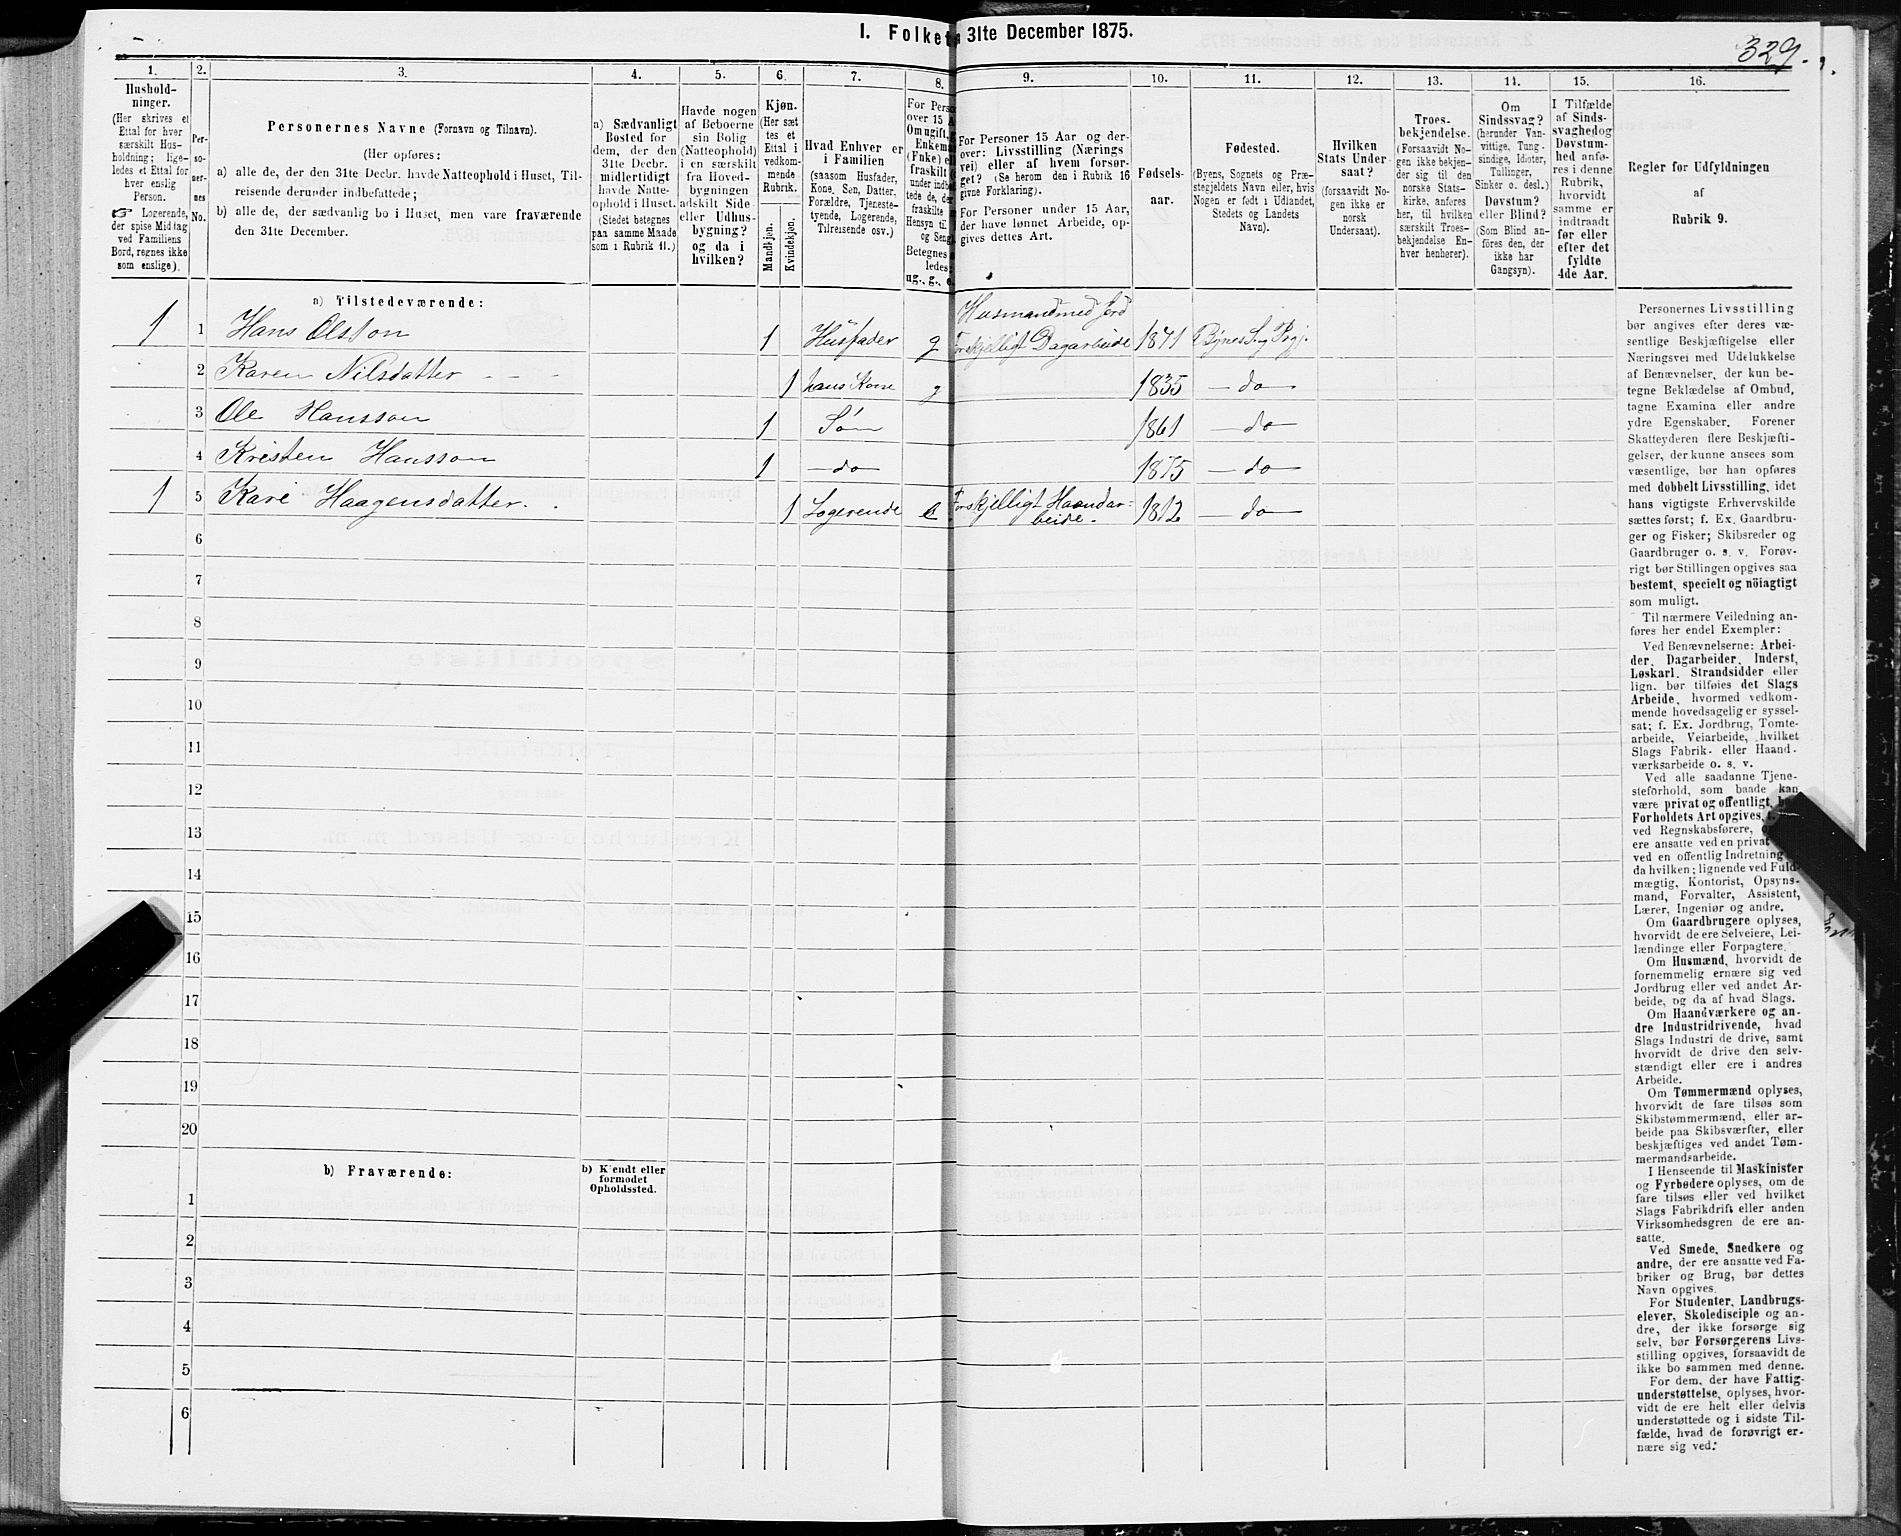 I. Folket
31te December 1875.
329.
1.
2.
3.
4.
5.
6.
7.
8.
9.
10.
11.
12.
13.
14.
15.
16.
Hushold-
ninger.
(Her skrives et
Ettal for hver
særskilt Hus-
holdning; lige-
ledes et Ettal for
hver enslig
Person.
☞ Logerende,
der spise Middag
ved Familiens
Bord, regnes ikke
som enslige).
Per-
so-
ner-
nes
No.
Personernes Navne (Fornavn og Tilnavn).
(Her opføres:
a) alle de, der den 31te Decbr. havde Natteophold i Huset, Til-
reisende derunder indbefattede;
b) alle de, der sædvanlig bo i Huset, men vare fraværende
den 31te December.
a) Sædvanligt
Bosted for
dem, der den
31te Decbr.
midlertidigt
havde Natte-
ophold i Huset.
(Stedet betegnes
paa samme Maade
som i Rubrik 11.)
Havde nogen
af Beboerne
sin Bolig
(Natteophold)
i en særskilt
fra Hoved-
bygningen
adskilt Side-
eller Udhus-
bygning?
og da i
hvilken?
Kjøn.
(Her sæt
tes et
Ettal i
vedkom-
mende
Rubrik.
Mandkjøn.
Kvindekjøn.
Hvad Enhver er
i Familien
(saasom Husfader,
Kone, Søn, Datter,
Forældre, Tjeneste-
tyende, Logerende,
Tilreisende osv.)
For Perso
over 15 A
Om ugift,
Enkema
(Enke) e
fraskilt
under indbe
tede de, der
fraskilte
Hensyn til
og Seng).
Betegnes
ledes:
ug., g., e.
For Personer 15 Aar og der-
over: Livsstilling (Nærings
vei) eller af hvem forsør-
get? (Se herom den i Rubrik 16
givne Forklaring).
For Personer under 15 Aar,
der have lønnet Arbeide, op-
gives dettes Art.
Fødsels-
aar.
Fødested.
(Byens, Sognets og Præ-
stegjeldets Navn eller, hvis
Nogen er født i Udlandet,
Stedets og Landets
Navn).
Hvilken
Stats Under-
saat?
(forsaavidt No-
gen ikke er
norsk
Undersaat).
Troes-
bekjendelse.
(Forsaavidt No-
gen ikke bekjen-
der sig til den
norske Stats-
kirke, anføres
her, til hvilken
særskilt Troes-
bekjendelse En-
hver henhører).
Om
Sindssvag?
(herunder Van-
vittige, Tung-
sindige, Idioter,
Tullinger,
Sinker o. desl.)
Døvstum?
eller Blind?
(Som Blind an-
føres den, der
ikke har
Gangsyn).
I Tilfælde
af Sinds-
svaghed og
Døvstum-
hed anfø-
res i denne
Rubrik,
hvorvidt
samme er
indtraadt
før eller
efter det
fyldte
4de Aar.
Regler for Udfyldningen
af
Rubrik 9.
a) Tilstedeværende:
1 1 Hans Olsson 1 Husfader g Husmand med Jord
Forskjelligt Dagarbeide 1841 Bynes S. og Prgj.
2 Karen Nilsdatter - - - 1 hans Kone g 1835 — do —
3 Ole Hansson 1 Søn 1861 — do —
4 Kristen Hansson 1 — do 1875 — do —
1 5 Kari Haagensdatter. 1 Logerende e Forskjelligt Haandar-
beide. 1812 — do —
6
7
8
9
10
11
12
13
14
15
16
17
18
19
20
b) Fraværende:
b) Kjendt eller
formodet
Opholdssted.
1
2
3
4
5
6
Personernes Livsstilling
bør angives efter deres væ-
sentlige Beskjæftigelse eller
Næringsvei med Udelukkelse
af Benævnelser, der kun be-
tegne Beklædelse af Ombud,
tagne Examina eller andre
ydre Egenskaber. Forener
Skatteyderen flere Beskjæfti-
gelser, der kunne ansees som
væsentlige, bør han opføres
med dobbelt Livsstilling, idet
hans vigtigste Erhvervskilde
sættes først; f. Ex. Gaardbru-
ger og Fisker; Skibsreder og
Gaardbruger o. s. v. Forøv-
rigt bør Stillingen opgives saa
bestemt, specielt og nöiagtigt
som muligt.
Til nærmere Veiledning an-
føres her endel Exempler:
Ved Benævnelserne: Arbei-
der, Dagarbeider, Inderst,
Løskarl, Strandsidder eller
lign. bør tilføies det Slags
Arbeide, hvormed vedkom-
mende hovedsagelig er syssel-
sat; f. Ex. Jordbrug, Tomte-
arbeide, Veiarbeide, hvilket
Slags Fabrik- eller Haand-
værksarbeide o. s. v.
Ved alle saadanne Tjene-
steforhold, som baade kan
være privat og offentligt, bør
Forholdets Art opgives,
ved Regnskabsførere,
ere ansatte ved en privat
ved en offentlig Indretning
da hvilken; lignende ved Fuld-
mægtig, Kontorist, Opsyns-
mand, Forvalter, Assistent,
Lærer, Ingeniør og andre.
Om Gaardbrugere oplyses,
hvorvidt de ere Selveiere, Lei-
lændinge eller Forpagtere.
Om Husmænd, hvorvidt de
fornemmelig ernære sig ved
Jordbrug eller ved andet Ar-
beide, og da af hvad Slags.
Om Haandværkere og an-
dre Industridrivende, hvad
Slags Industri de drive, samt
hvorvidt de drive den selv-
stændigt eller ere i andres
Arbeide.
Om Tømmermænd oplyses,
hvorvidt de fare tilsøs som
Skibstømmermænd, eller ar-
beide paa Skibsværfter, eller
beskjæftiges ved andet Tøm-
mermandsarbeide.
I Henseende til Maskinister
og Fyrbødere oplyses, om de
fare tilsøs eller ved hvilket
Slags Fabrikdrift eller anden
Virksomhedsgren de ere an-
satte.
Ved Smede, Snedkere og
andre, der ere ansatte ved Fa-
briker og Brug, bør dettes
Navn opgives.
For Studenter, Landbrugs-
elever, Skoledisciple og an-
dre, der ikke forsørge sig
selv, bør Forsørgerens Livs-
stilling opgives, forsaavidt de
ikke bo sammen med denne.
For dem, der have Fattig-
understøttelse, oplyses, hvor-
vidt de ere helt eller delvis
understøttede og i sidste Til-
fælde, hvad de forøvrigt er-
nære sig ved.